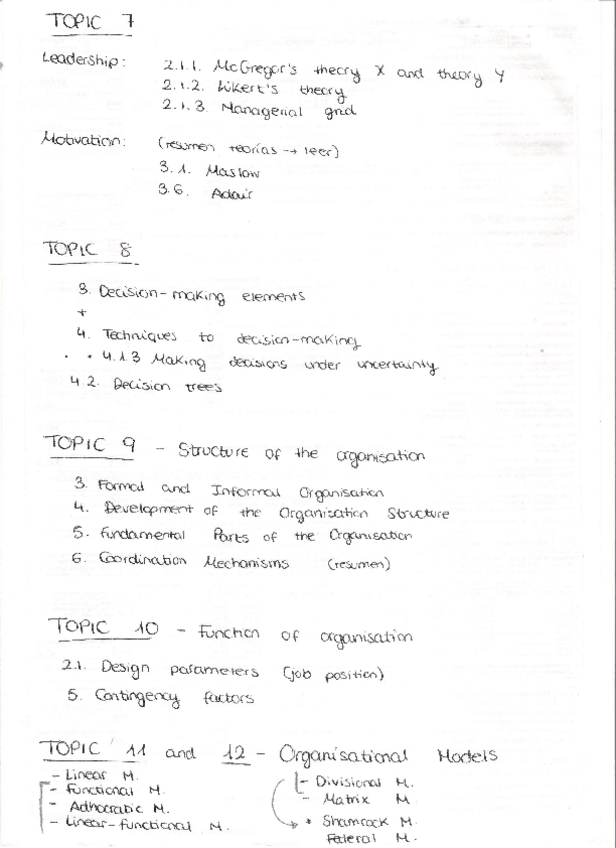 TOPIC 7
Leadership: 2.1.1. McGregor's theory X and theory Y
2.1.2. Likert's theory
2.1.3. Managerial grid
Motivation: (resumen teorías → leer)
3.1. Maslow
3.6. Adair
TOPIC 8
3. Decision-making elements
+
4. Techniques to decision-making
• • 4.1.3 Making decisions under uncertainty
4.2. Decision trees
TOPIC 9 - Structure of the organisation
3. Formal and Informal Organisation
4. Development of the Organisation Structure
5. Fundamental Parts of the Organisation
6. Coordination Mechanisms (resumen)
TOPIC 10 - Function of organisation
2.1. Design parameters (job position)
5. Contingency factors
TOPIC 11 and 12 - Organisational Models
- Linear M.
- Functional M.
- Adhocratic M.
- Linear-functional M.
- Divisional M.
- Matrix M
* Shamrock M.
Federal M.